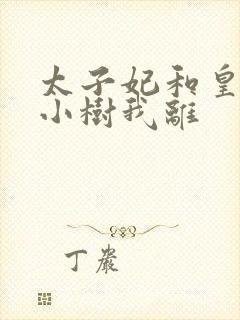 太子妃和皇
小樹我離
丁巖